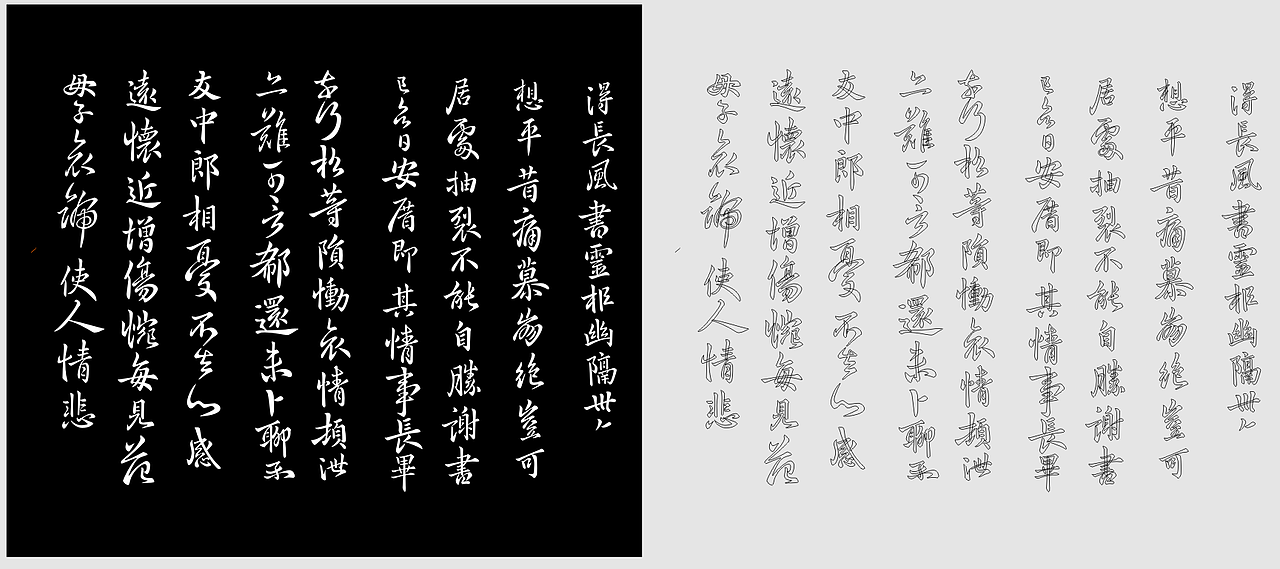 得長風書靈柩幽隔卅
想平昔痛慕崩絕豈可
居處抽裂不能自勝謝書
已今日安厝即其情事長畢
奈何松等隕慟哀情頓泄
亦難可言郗還未卜聊示
友中郎相憂不去心感
遠懷近增傷惋每見范
母子哀號使人情悲
得長風書靈柩幽隔卅
想平昔痛慕崩絕豈可
居處抽裂不能自勝謝書
已今日安厝即其情事長畢
奈何松等隕慟哀情頓泄
亦難可言郗還未卜聊示
友中郎相憂不去心感
遠懷近增傷惋每見范
母子哀號使人情悲